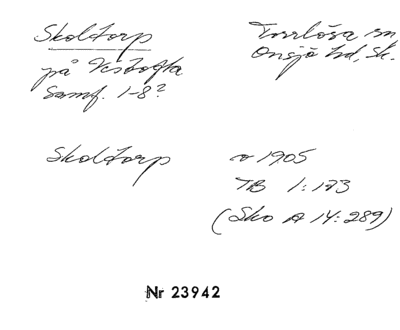 Skoltorp
Torrlösa sn
på Västofta
Onsjö hd, Sk.
Samf. 1-8?
Skoltorp
v 1905
TB 1:173
(Sko A 14:289)
Nr 23942